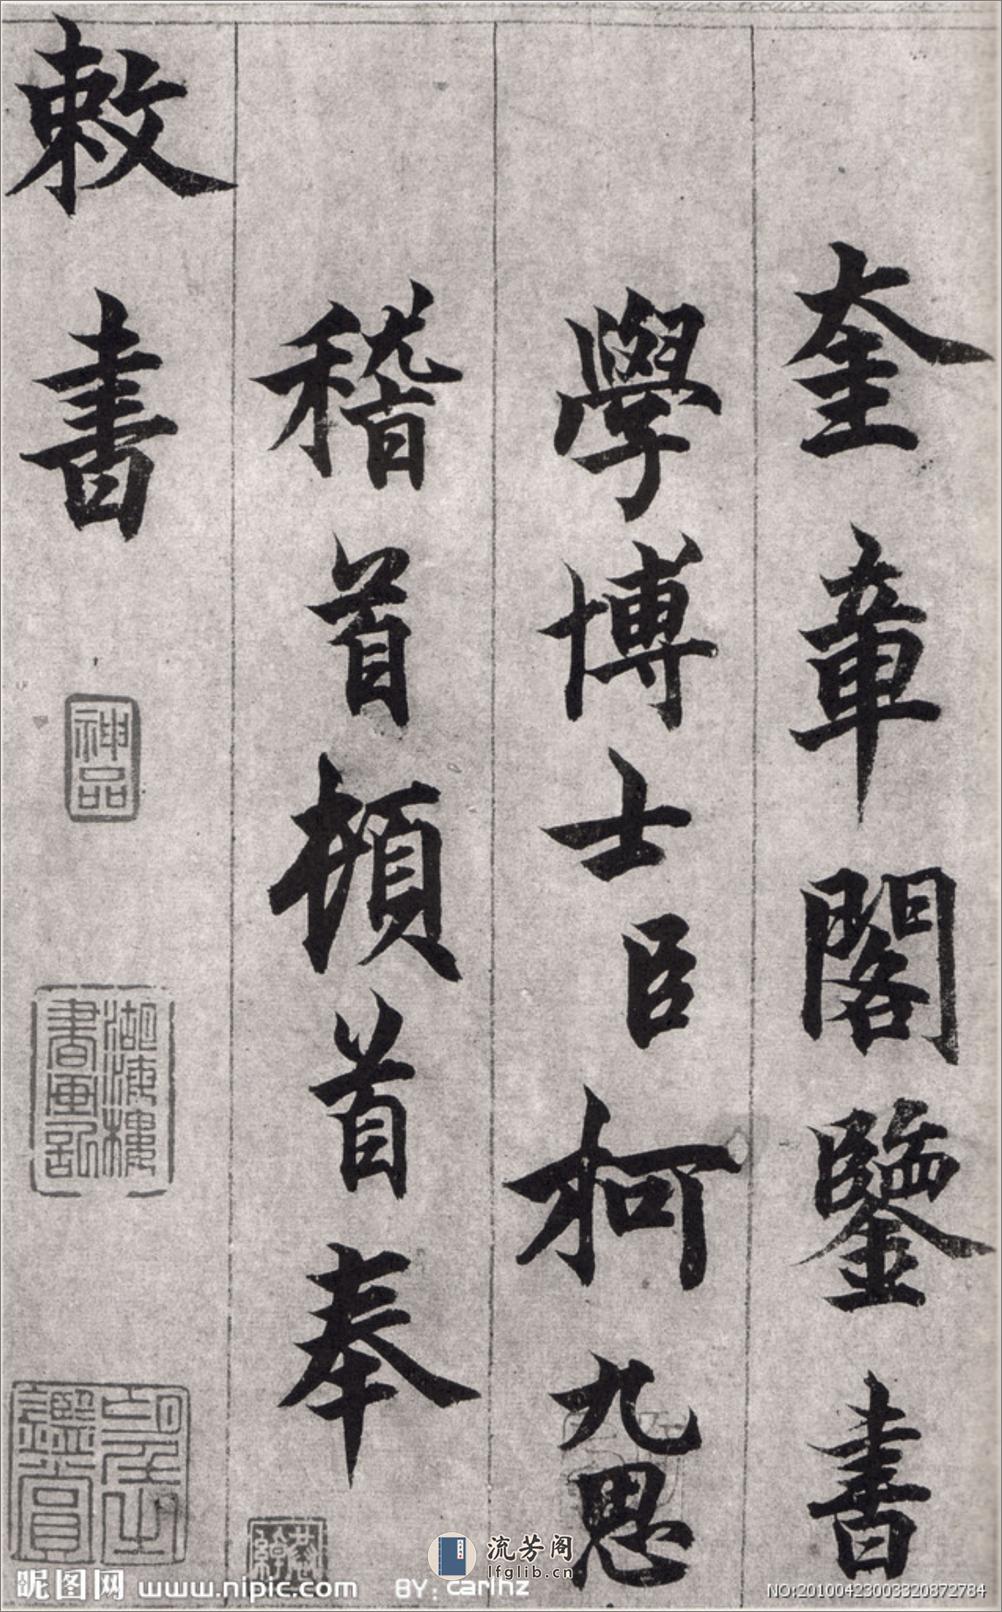 奎章閣鑒書
學博士臣柯九思
稽首頓首奉
敕書
神品
湖海樓書画記
鑑賞
流芳阁
lfglib.cn
昵图网 www.nipic.com BY: carlhz
NO:20100423003320872784